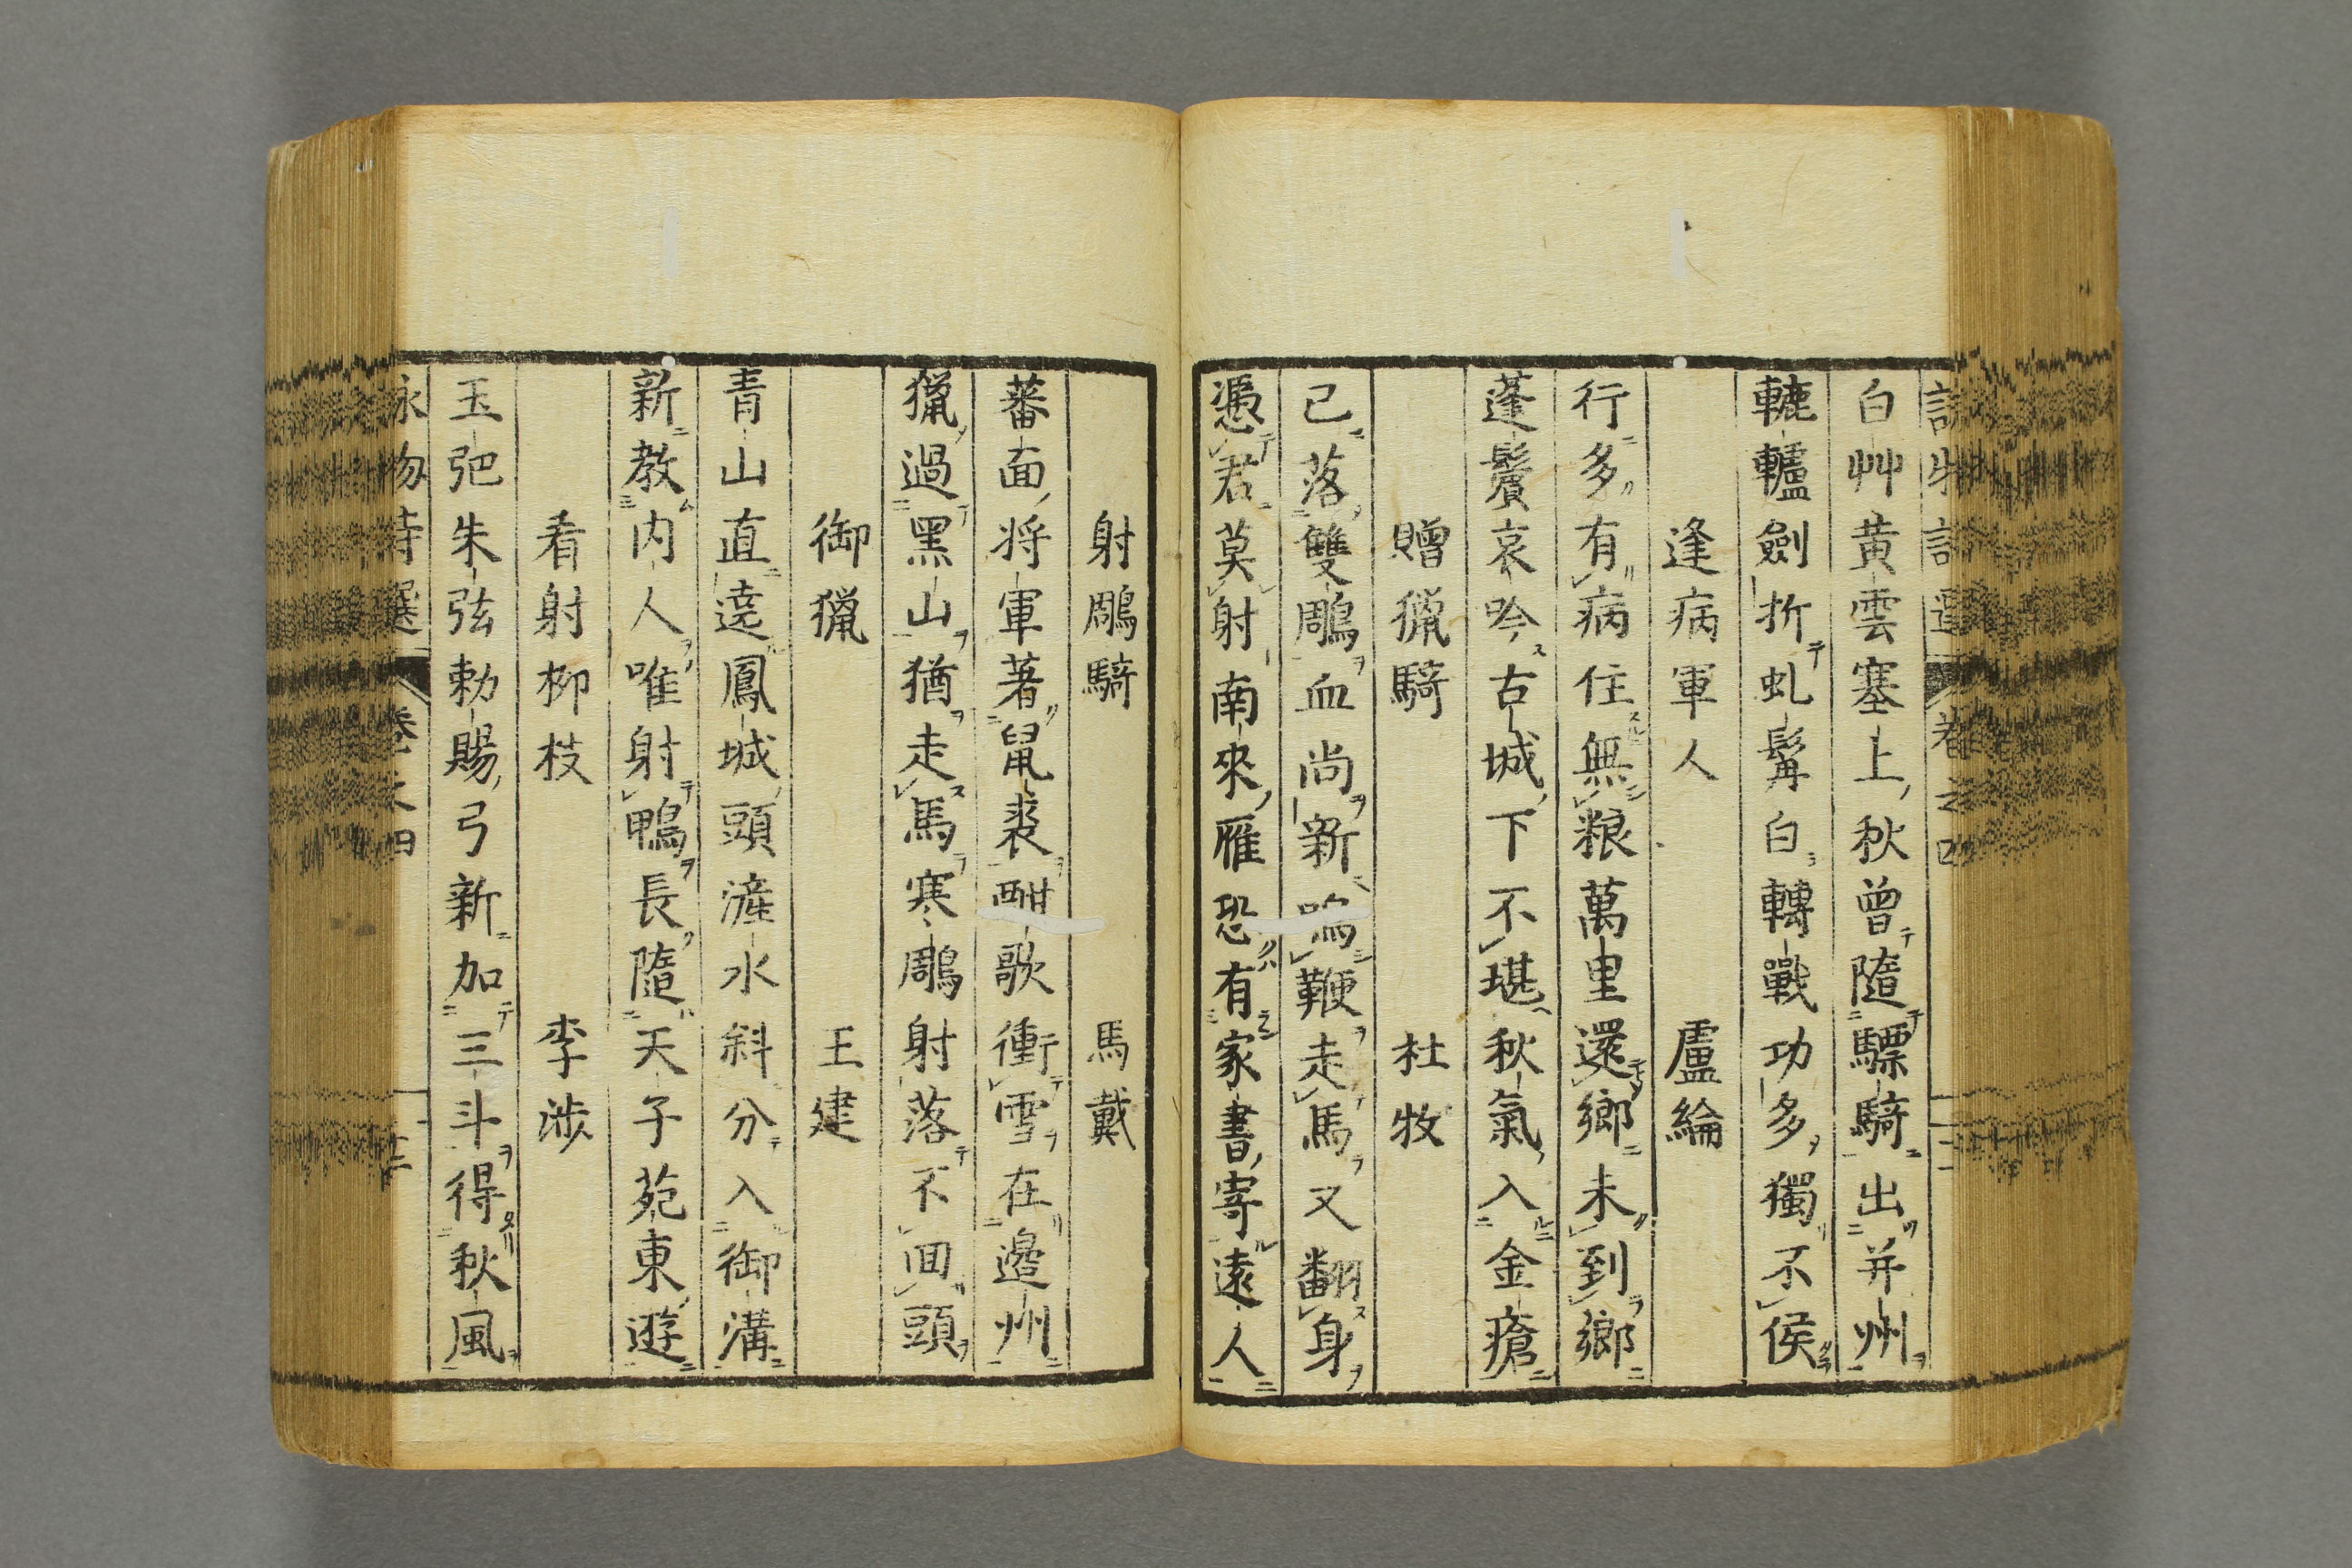 白艸黄雲塞上秋曾隨驃騎出并州
轆轤劍折虬髯白轉戰功多獨不侯
逢病軍人　盧綸
行多有病住無粮萬里還鄉未到鄉
蓬鬢哀吟古城下不堪秋氣入金瘡
贈獵騎　杜牧
已落雙鵰血尚新鳴鞭走馬又翻身
憑君莫射南來雁恐有家書寄遠人
射鵰騎　馬戴
蕃面將軍著鼠裘酣歌衝雪在邊州
獵過黑山猶走馬寒鵰射落不回頭
御獵　王建
青山直遶鳳城頭滻水斜分入御溝
新教内人唯射鴨長隨天子苑東遊
看射柳枝　李涉
玉弝朱弦勅賜弓新加三斗得秋風
詠物詩選　卷之四　十二